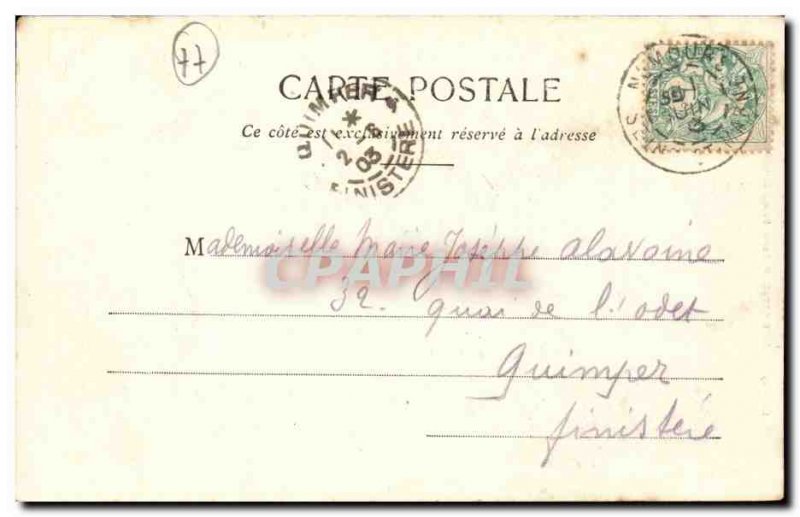 77
CARTE POSTALE
Ce côté est exclusivement réservé à l'adresse
QUIMPER
*
2
03
FINISTERE
NEMOURS
Mademoiselle Marie Josèphe Alavoine
CPAPHIL
32. quai de l'odet
Quimper
finistère